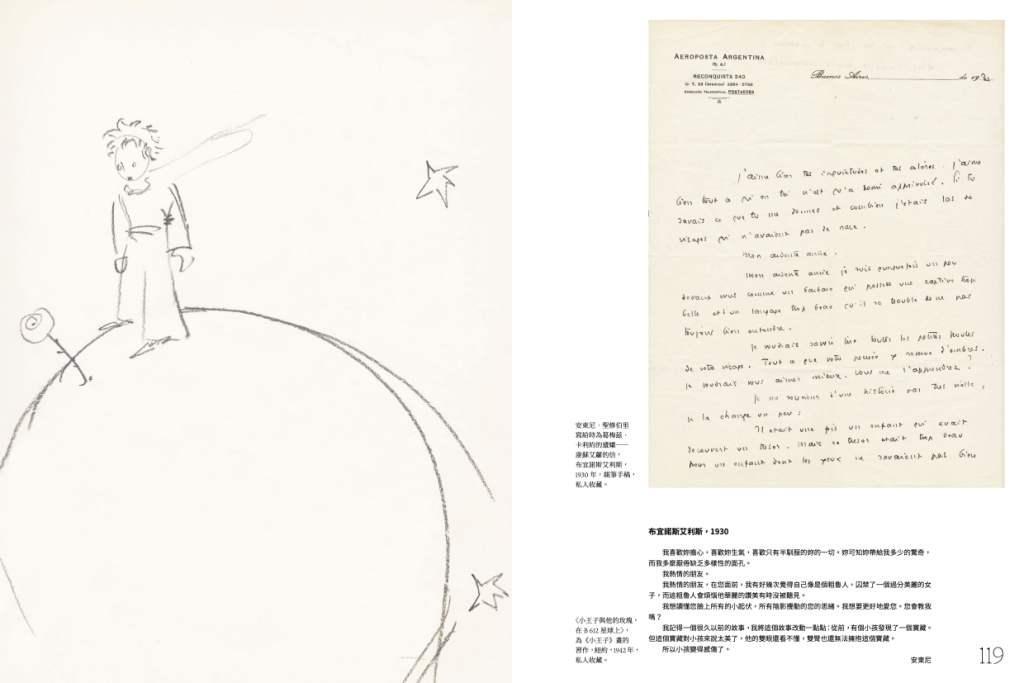 AEROPOSTA ARGENTINA
RECONQUISTA 240
Buenos Aires de 19
J'aime bien tes inquiétudes et tes colères. J'aime
bien tout ce qui en toi n'est qu'à demi apprivoisé. Si tu
savais ce que tu me donnes et combien j'étais las de
visages qui n'avaient pas de race.
Mon ardente amie.
Mon ardente amie je suis quelquefois un peu
devant vous comme un barbare qui possède une captive trop
belle et d'un langage trop beau qu'il se trouble de ne pas
toujours bien entendre.
Je voudrais savoir lire toutes les petites houles
de votre visage. Tout ce que votre pensée y remue d'ombres.
Je voudrais vous aimer mieux. Vous me l'apprendrez ?
Je me souviens d'une histoire pas très vieille,
je la change un peu :
Il était une fois un enfant qui avait
découvert un trésor. Mais ce trésor était trop beau
pour un enfant dont les yeux ne savaient pas bien
安東尼．聖修伯里
寫給時為葛梅茲．
卡利約的遺孀——
康蘇艾蘿的信，
布宜諾斯艾利斯，
1930 年，鋼筆手稿，
私人收藏。
布宜諾斯艾利斯，1930
我喜歡妳擔心，喜歡妳生氣，喜歡只有半馴服的妳的一切。妳可知妳帶給我多少的驚奇，
而我多麼厭倦缺乏多樣性的面孔。
我熱情的朋友。
我熱情的朋友，在您面前，我有好幾次覺得自己像是個粗魯人，囚禁了一個過分美麗的女
子，而這粗魯人會煩惱他華麗的讚美有時沒被聽見。
我想讀懂您臉上所有的小起伏，所有陰影攪動的您的思緒。我想要更好地愛您。您會教我
嗎？
我記得一個很久以前的故事，我將這個故事改動一點點：從前，有個小孩發現了一個寶藏。
但這個寶藏對小孩來說太美了，他的雙眼還看不懂，雙臂也還無法擁抱這個寶藏。
所以小孩變得感傷了。
安東尼
〈小王子與他的玫瑰，
在 B 612 星球上〉，
為《小王子》畫的
習作，紐約，1942 年，
私人收藏。
119